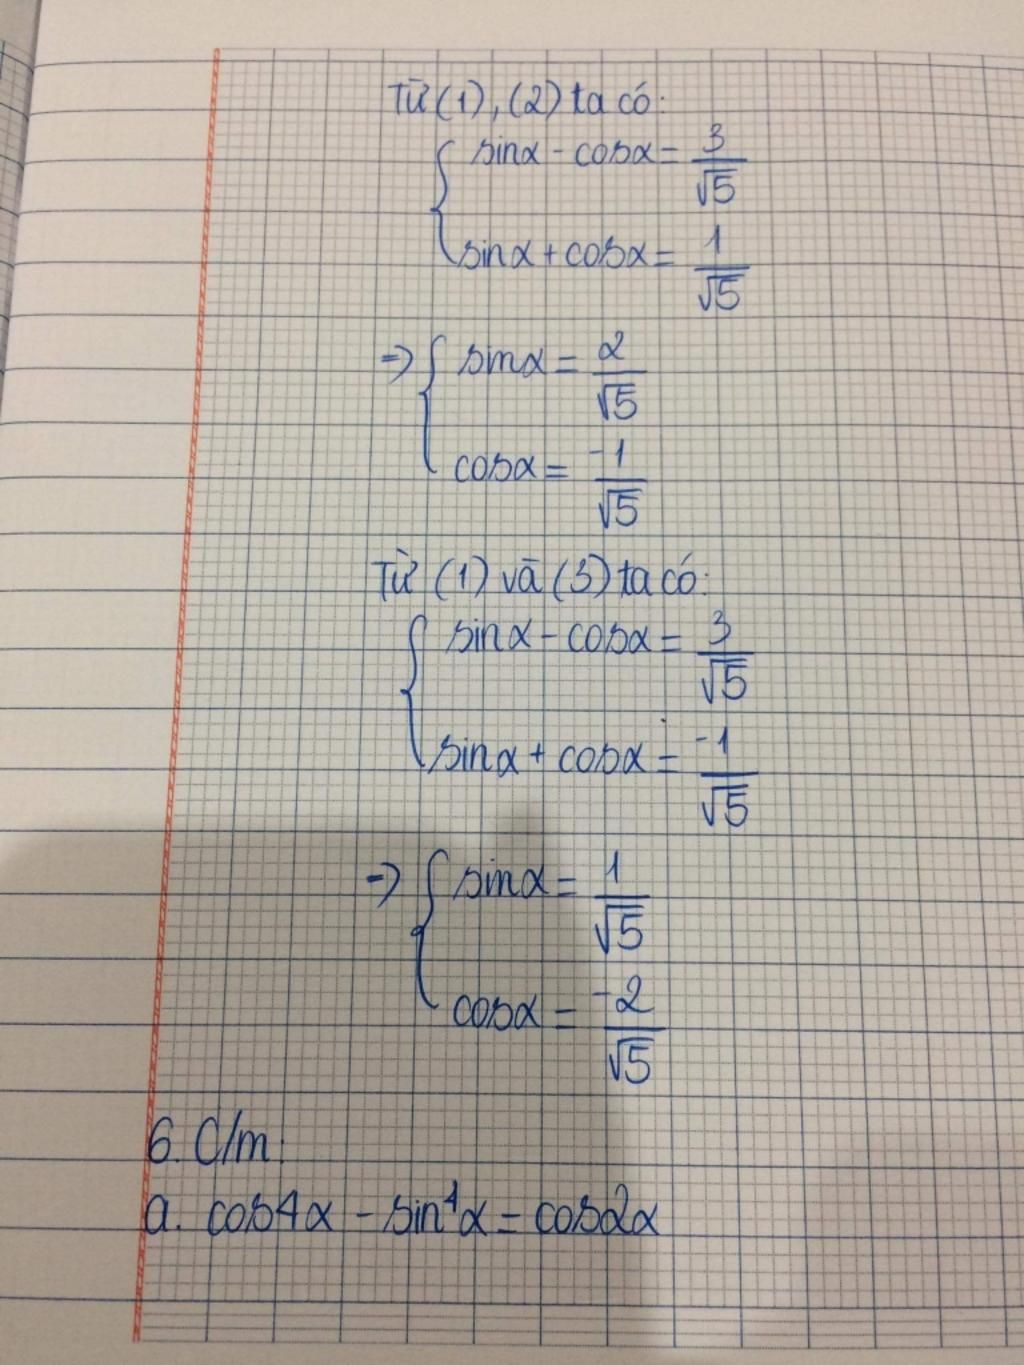 Từ (1), (2) ta có:
{ sinα - cosα = 3/√5
sinα + cosα = 1/√5
=> { sinα = 2/√5
cosα = -1/√5
Từ (1) và (3) ta có:
{ sinα - cosα = 3/√5
sinα + cosα = -1/√5
=> { sinα = 1/√5
cosα = -2/√5
6. C/m:
a. cos4α - sin⁴α = cos2α